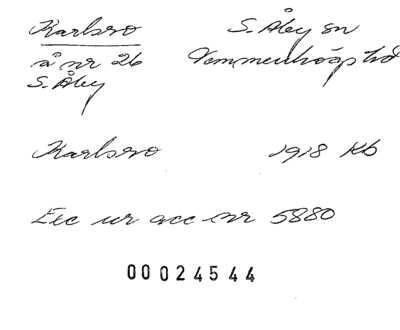 Karlsro S. Åby sn
å nr 26 Vemmenhögs hd
S. Åby
Karlsro 1918 Kb
Exc ur acc nr 5880
00024544